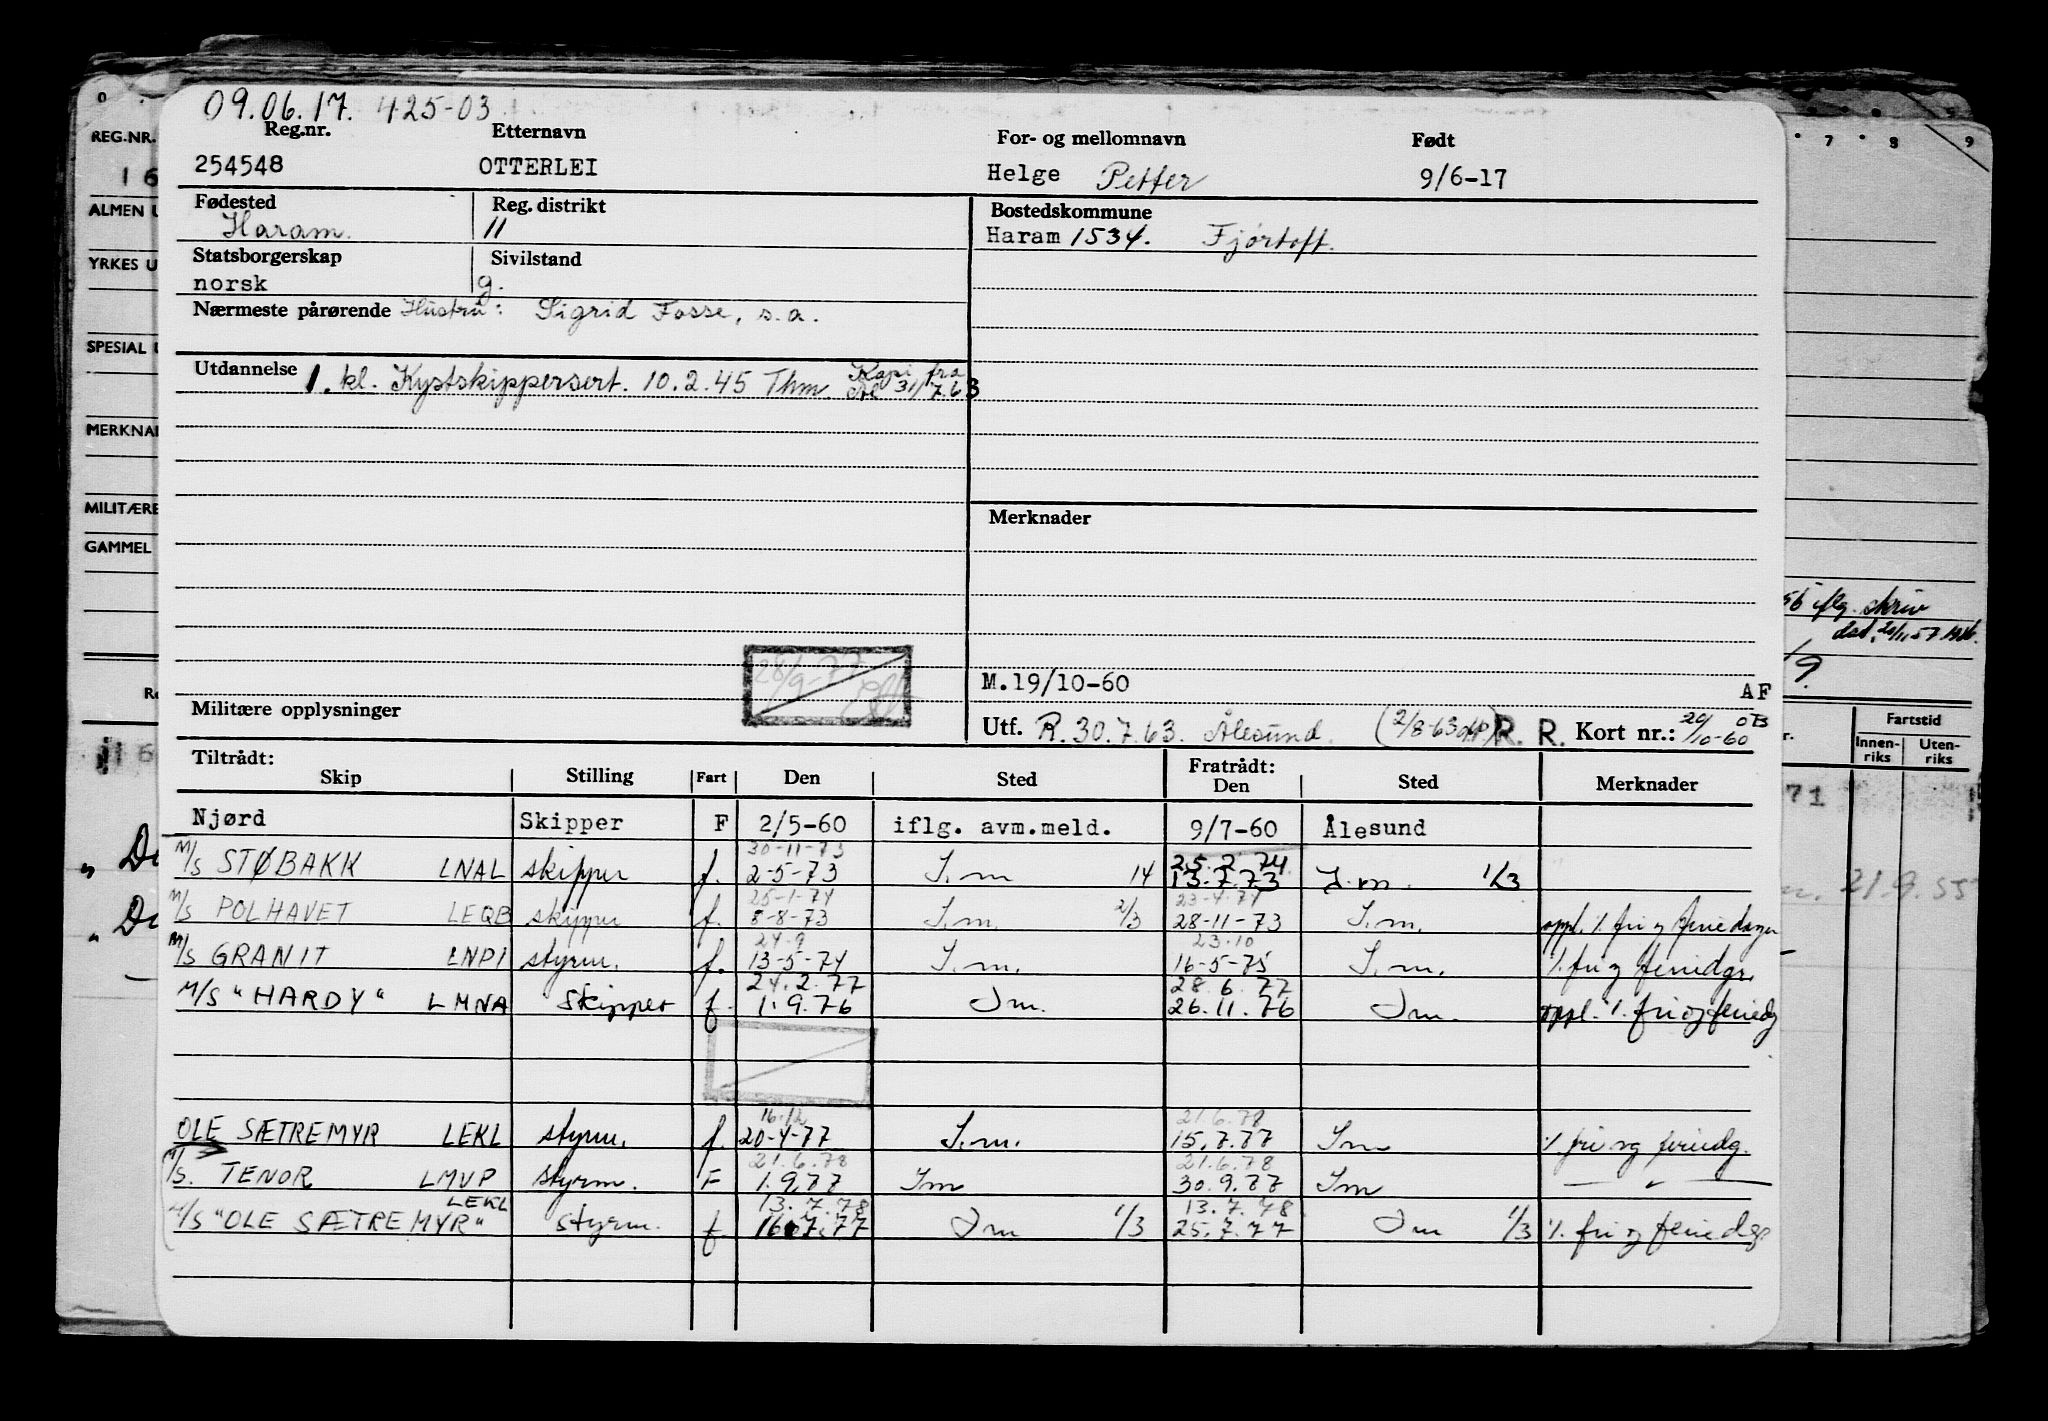 09.06.17. 425-03
Reg.nr. Etternavn For- og mellomnavn Født
254548 OTTERLEI Helge Petter 9/6-17
Fødested Reg. distrikt Bostedskommune
Haram. 11 Haram 1534. Fjørtoft.
Statsborgerskap Sivilstand
norsk g.
Nærmeste pårørende Hustru: Sigrid Fosse, s.a.
Utdannelse 1. kl. Kystskippersert. 10.2.45 Thm. Kapi fra
31/7.63
Merknader
28/9-77
M.19/10-60 AF
Militære opplysninger
Utf. R. 30.7.63. Ålesund. (2/8-63 R. R. Kort nr.: 20/10-60 OB
Tiltrådt: Fratrådt:
Skip Stilling Fart Den Sted Den Sted Merknader
Njørd Skipper F 2/5-60 iflg. avm.meld. 9/7-60 Ålesund
30-11-73 25.2.74
M/S STØBAKK LNAL skipper f. 2-5-73 I.m 14 13.7.73 I.m. 1/3
25-1-74 23-4-74
M/S POLHAVET LEQB skipper f. 8-8-73 I.m. 2/3 28-11-73 I.m. oppl. % fri og feriedager
24-9 23.10
M/S GRANIT LNPI styrm. f. 13-5-74 I.m. 16-5-75 I.m. % fri og feriedgr.
24.2.77 28.6.77
M/S "HARDY" LMNA skipper f. 1.9.76 Im. 26.11.76 Im. oppl. % fri og feriedg
16.12 21.6.78
OLE SÆTREMYR LEKL styrm. f. 20-4-77 I.m. 15.7.77 Im % fri og feriedg.
21.6.78 21.6.78
M/S. TENOR LMVP styrm. F 1.9.77 Im 30.9.77 Im — " —
LEKL 13.7.78 13.7.78
M/S "OLE SÆTREMYR" styrm. f. 16.7.77 Im 1/3 25.7.77 Im 1/3 % fri og feriedg.
REG.NR.
16
ALMEN U
YRKES U
SPESIAL U
MERKNAD
MILITÆRE
GAMMEL
7 8 9
56 iflg. skriv
Fartstid
Innen-
riks
Uten-
riks
71
21.9.55